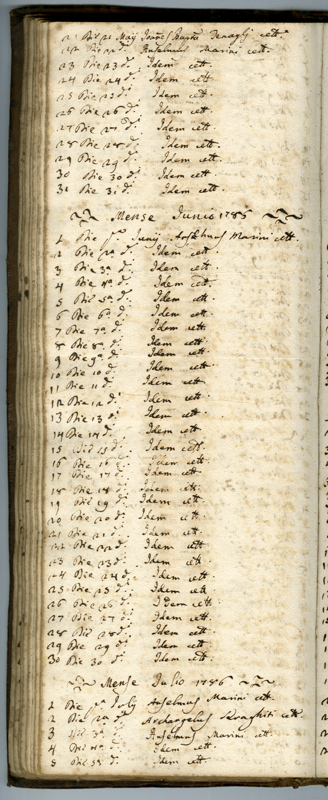 21 Die 21 Maij Joañes Bapta cett.
22 Die 22 d.° Anselmus Marini cett.
23 Die 23 d.° Idem cett.
24 Die 24 d.° Idem cett.
25 Die 25 d.° Idem cett.
26 Die 26 d.° Idem cett.
27 Die 27 d.° Idem cett.
28 Die 28 d.° Idem cett.
29 Die 29 d.° Idem cett.
30 Die 30 d.° Idem cett.
31 Die 31 d.° Idem cett.
Mense Junio 1786
1 Die p.ª Junij Anselmus Marini cett.
2 Die 2ª d.° Idem cett.
3 Die 3ª d.° Idem cett.
4 Die 4ª d.° Idem cett.
5 Die 5ª d.° Idem cett.
6 Die 6ª d.° Idem cett.
7 Die 7ª d.° Idem cett.
8 Die 8ª d.° Idem cett.
9 Die 9ª d.° Idem cett.
10 Die 10 d.° Idem cett.
11 Die 11 d.° Idem cett.
12 Die 12 d.° Idem cett.
13 Die 13 d.° Idem cett.
14 Die 14 d.° Idem cett.
15 Die 15 d.° Idem cett.
16 Die 16 d.° Idem cett.
17 Die 17 d.° Idem cett.
18 Die 18 d.° Idem cett.
19 Die 19 d.° Idem cett.
20 Die 20 d.° Idem cett.
21 Die 21 d.° Idem cett.
22 Die 22 d.° Idem cett.
23 Die 23 d.° Idem cett.
24 Die 24 d.° Idem cett.
25 Die 25 d.° Idem cett.
26 Die 26 d.° Idem cett.
27 Die 27 d.° Idem cett.
28 Die 28 d.° Idem cett.
29 Die 29 d.° Idem cett.
30 Die 30 d.° Idem cett.
Mense Julio 1786
1 Die p.ª July Anselmus Marini cett.
2 Die 2ª d.° Archangelus cett.
3 Die 3ª d.° Anselmus Marini cett.
4 Die 4ª d.° Idem cett.
5 Die 5ª d.° Idem cett.